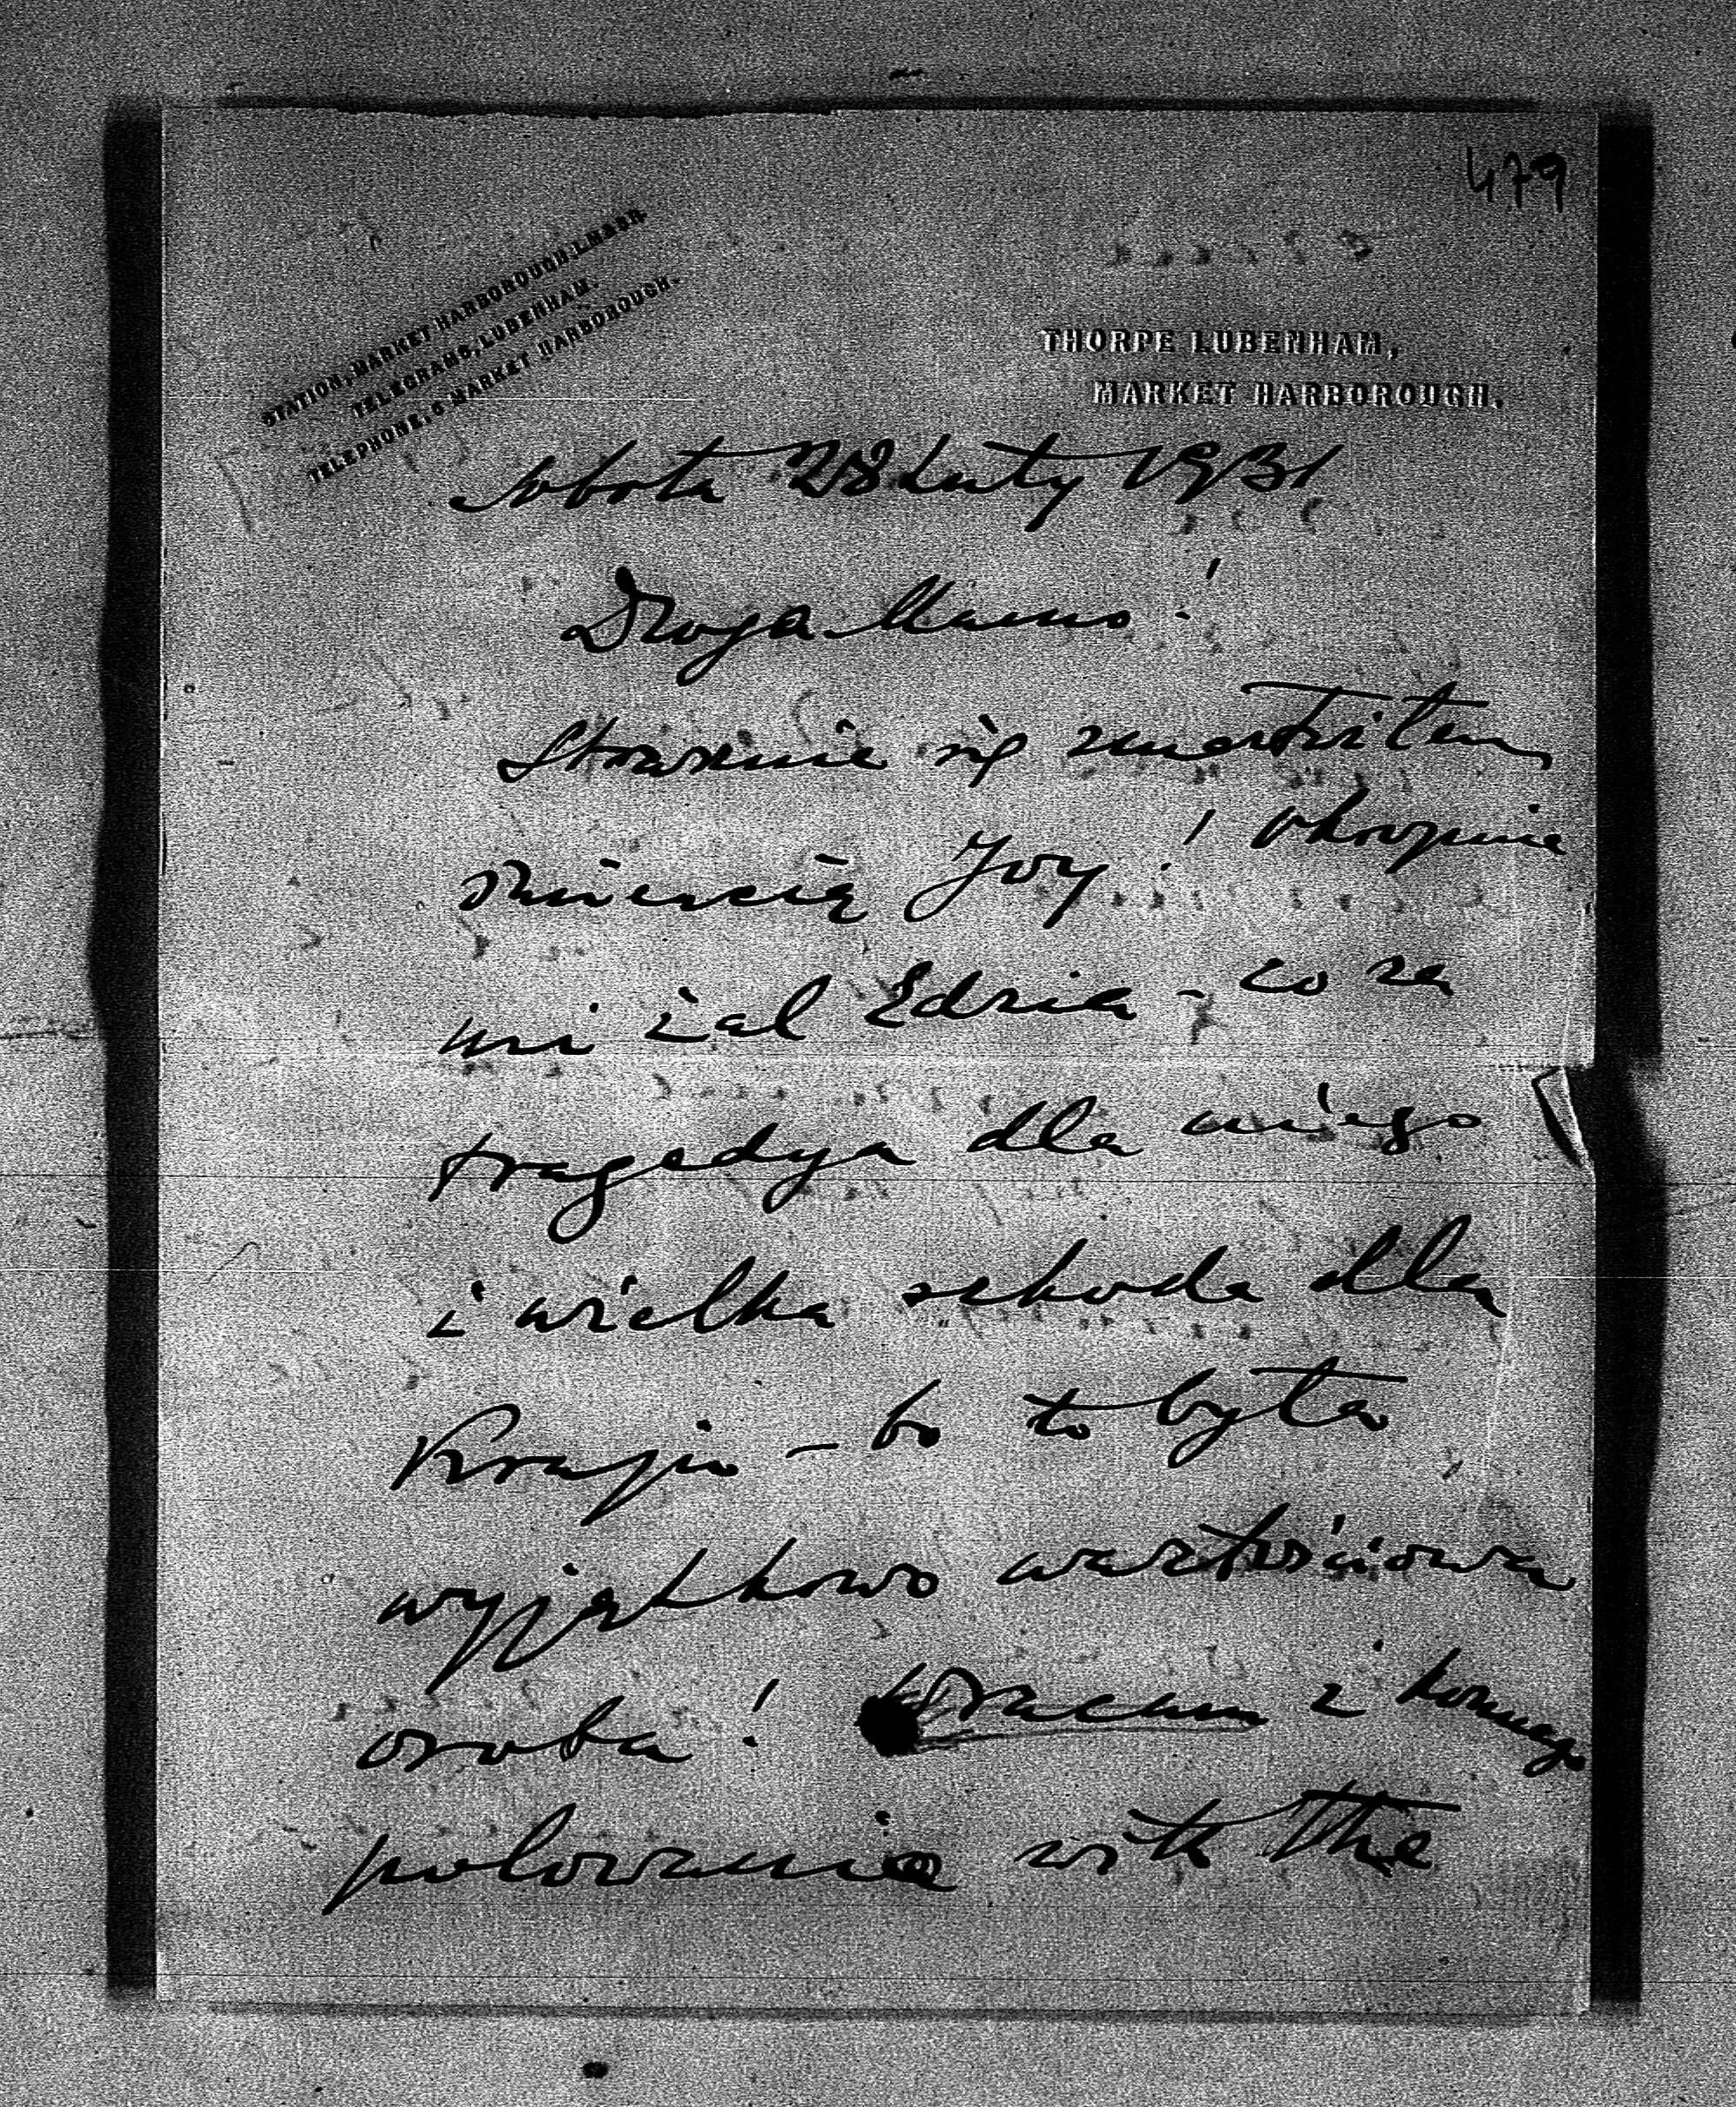 479
STATION, MARKET HARBOROUGH, L.M.&S.R.
TELEGRAMS, LUBENHAM.
TELEPHONE, 6 MARKET HARBOROUGH.
THORPE LUBENHAM,
MARKET HARBOROUGH.
Sobota 28 Luty 1931
Droga Mamo!
Strasznie się zmartwiłem
śmiercią Joy! Okropnie
mi żal Edzia - co za
tragedya dla niego
i wielka szkoda dla
Kraju - bo to była
wyjątkowo wartościowa
osoba! Wracam z konnego
polowania with the